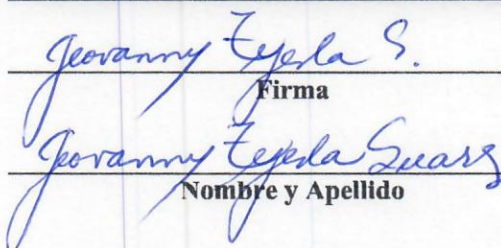 Jeovanny Tejeda S.
Firma
Jeovanny Tejeda Suarez
Nombre y Apellido